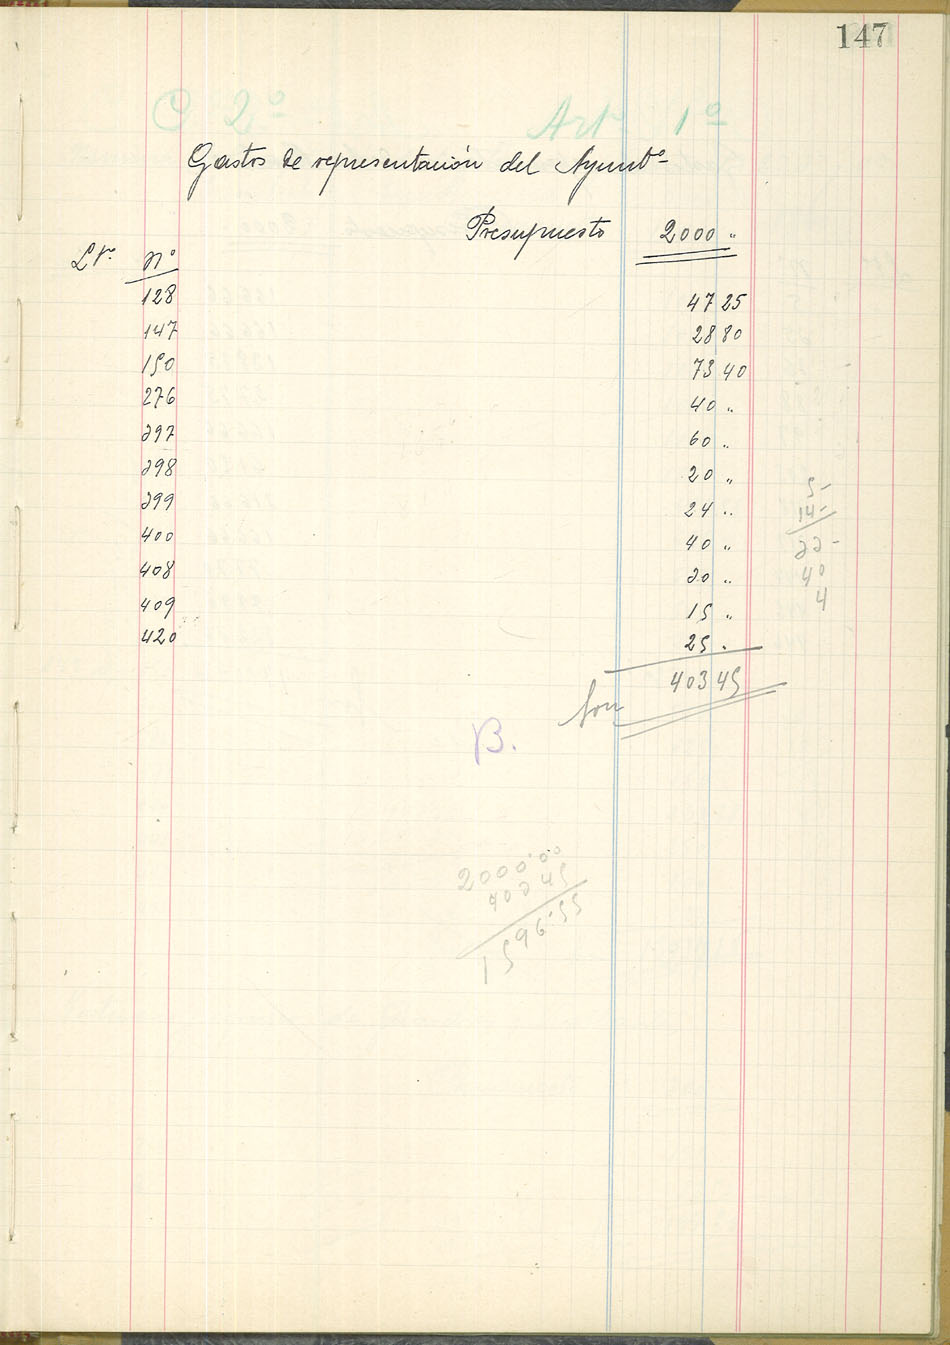 147
C 2º Art 1º
Gastos de representación del Ayuntº
Presupuesto 2000 "
Lº nº
128 47 25
147 28 80
150 73 40
276 40 "
397 60 "
398 20 "
399 24 "
400 40 "
408 30 "
409 15 "
420 25 "
Son 403 45
5-
14-
33-
40
4
B.
2000'00
403 45
1596'55